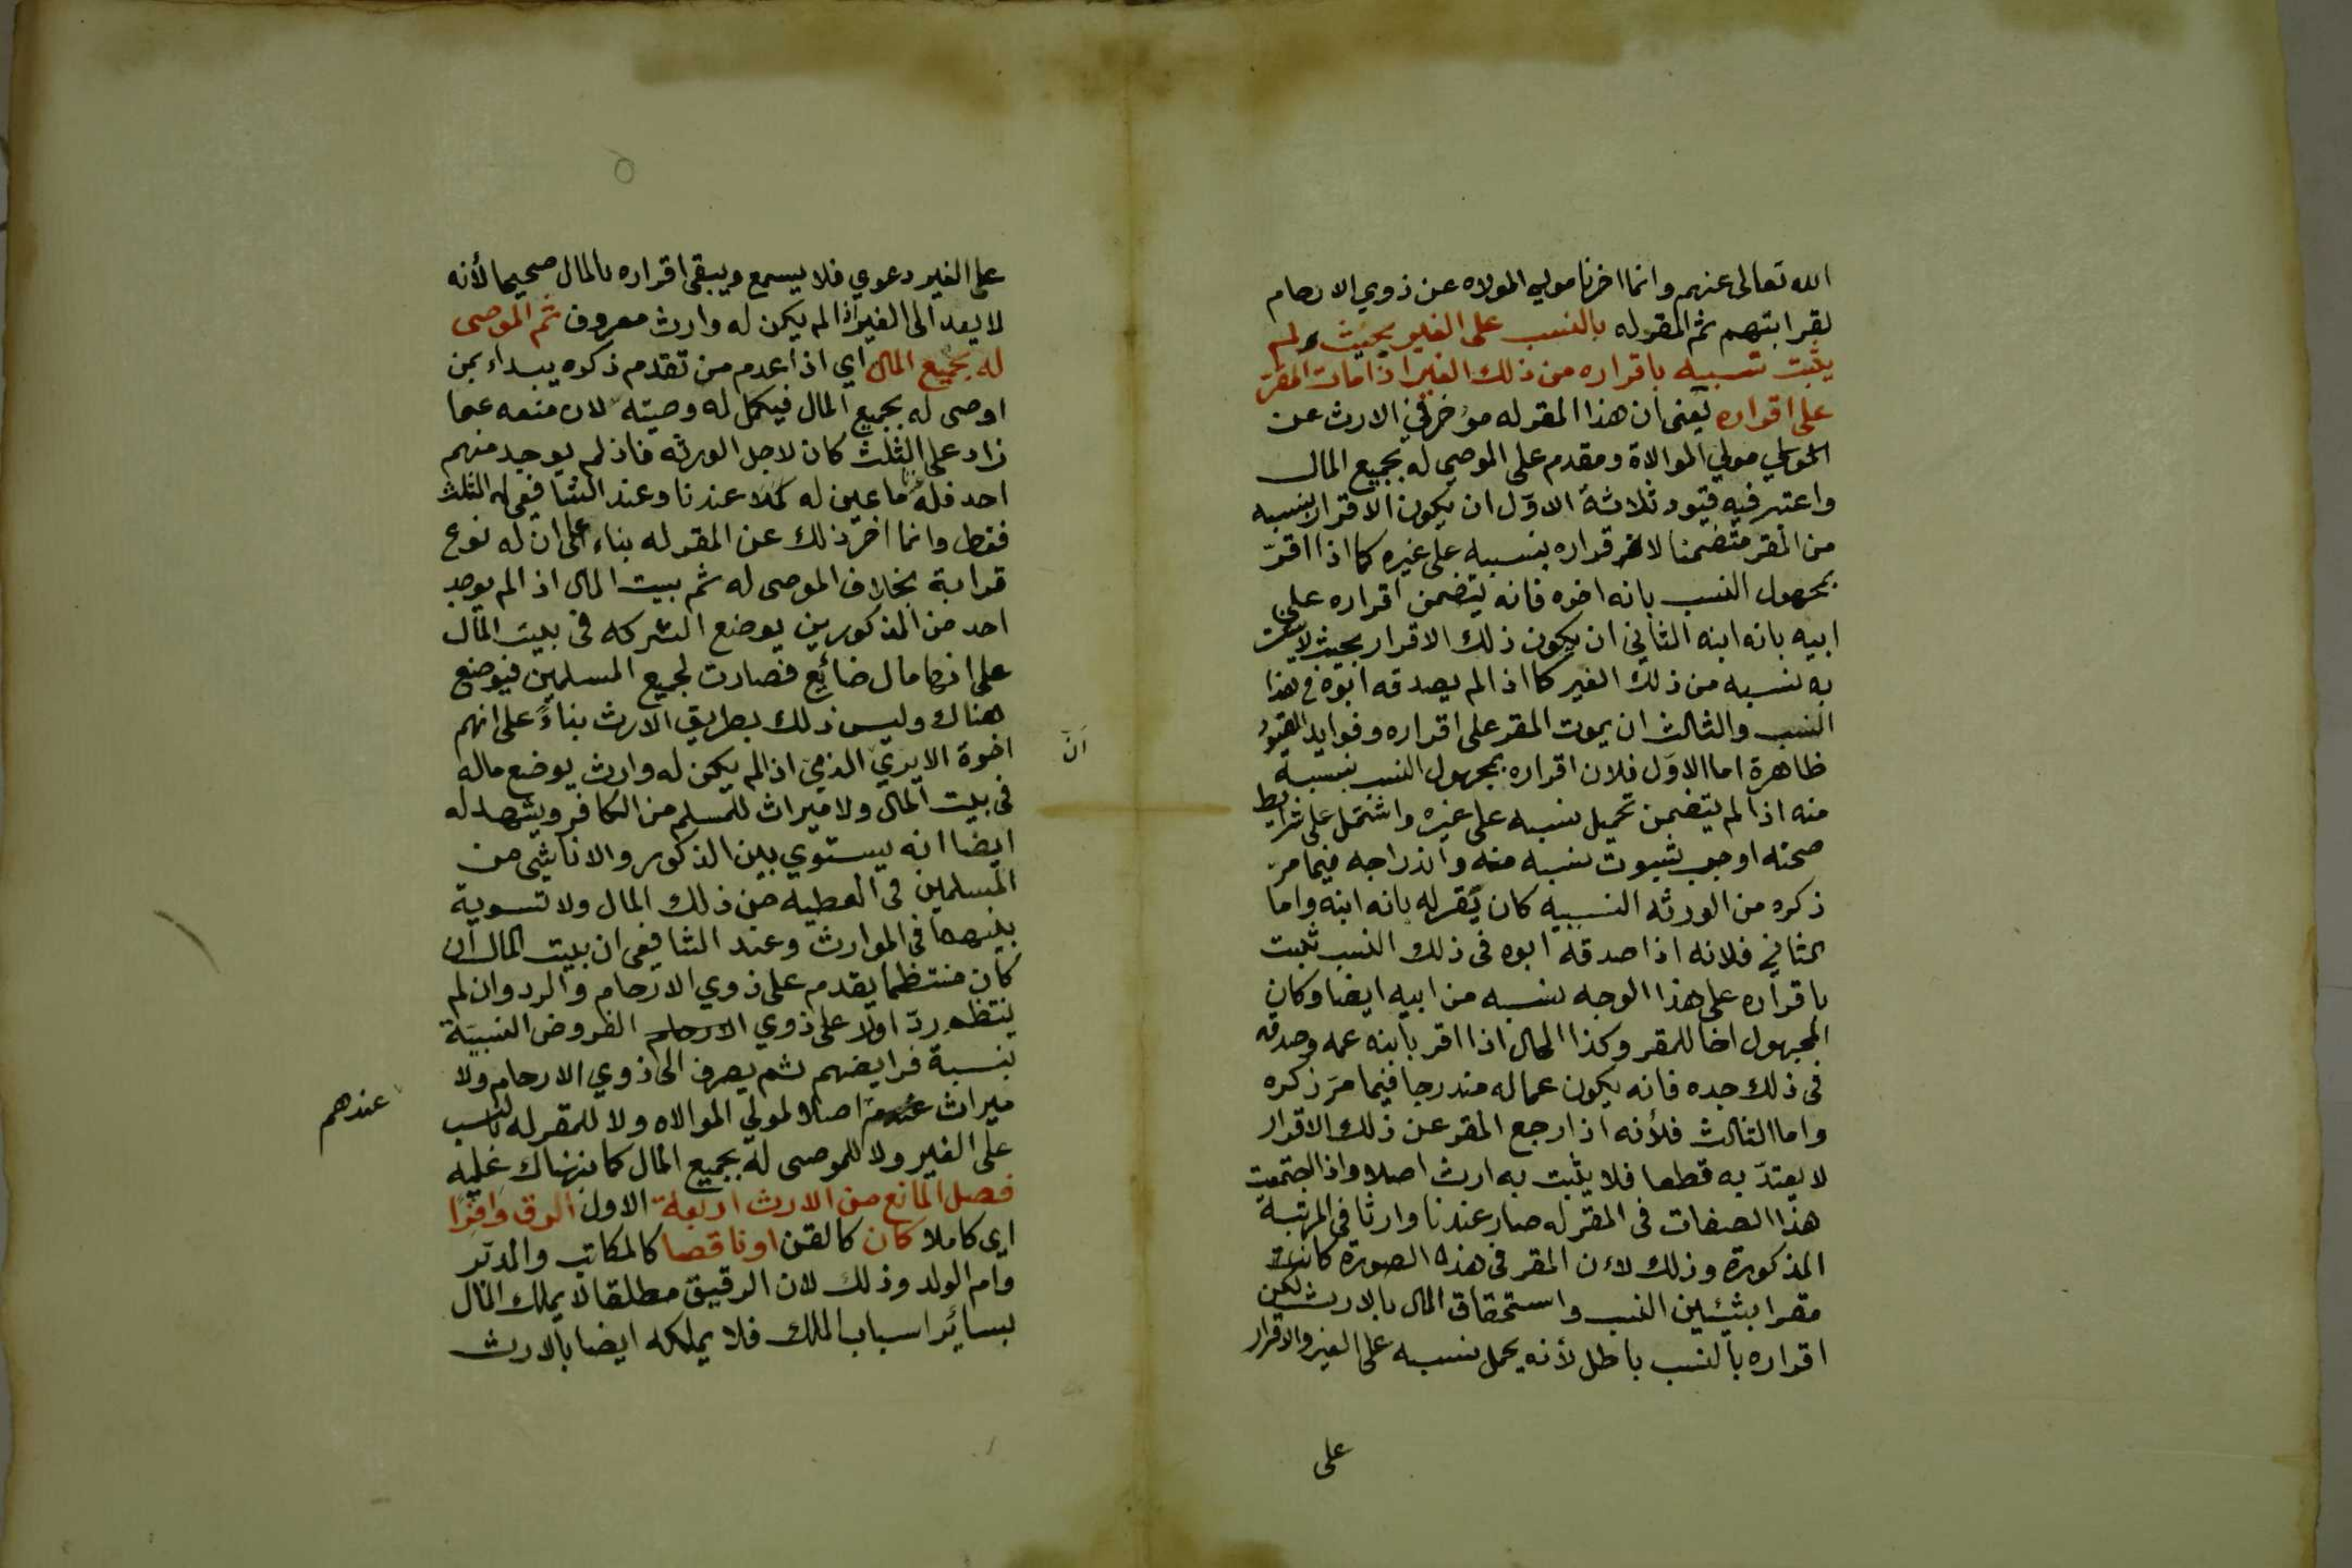 الله تعالى عنهم وانما اخرنا مولي الموالاه عن ذوي الارحام
لقرابتهم ثم المقر له بالنسب على الغير بحيث لم
يثبت نسبه باقراره من ذلك الغير اذا مات المقر
على اقراره يعنى ان هذا المقر له مؤخر في الارث عن
مولي الموالاة ومقدم على الموصى له بجميع المال
واعتبر فيه قيود ثلاثة الاوّل ان يكون الاقرار بنسبه
من المقر متضمنا لاقراره بنسبه على غيره كما اذا اقرّ
بمجهول النسب بانه اخوه فانه يتضمن اقراره على
ابيه بانه ابنه الثاني ان يكون ذلك الاقرار بحيث لا يثبت
به نسبه من ذلك الغير كما اذا لم يصدقه ابوه في هذا
النسب والثالث ان يموت المقر على اقراره وفوايد القيود
ظاهرة اما الاوّل فلان اقراره بمجهول النسب بنسبه
منه اذا لم يتضمن تحميل نسبه على غيره واشتمل على شرايط
صحته اوجب ثبوت نسبه منه واندراجه فيما مرّ
ذكره من الورثه النسبيه كان يقر له بانه ابنه واما
الثاني فلانه اذا صدقه ابوه فى ذلك النسب ثبت
باقراره على هذا الوجه نسبه من ابيه ايضا وكان
المجهول اخا للمقر وكذا الحال اذا اقر بابنه عمه وصدقه
فى ذلك جده فانه يكون عما له مندرجا فيما مرّ ذكره
واما الثالث فلأنه اذا رجع المقر عن ذلك الاقرار
لا يعتدّ به قطعا فلا يثبت به ارث اصلا واذا اجتمعت
هذا الصفات فى المقر له صار عندنا وارثا في المرتبة
المذكورة وذلك لاءن المقر فى هذه الصورة كانت
مقرا بشيئين النسب واستحقاق المال بالارث لكن
اقراره بالنسب باطل لأنه يحمل نسبه على الغير والاقرار
على
على الغير دعوي فلا يسمع ويبقى اقراره بالمال صحيحا لأنه
لا يعد الى الغير اذا لم يكن له وارث معروف ثم الموصى
له بجميع المال اي اذا عدم من تقدم ذكره يبداء بمن
اوصى له بجميع المال فيكمل له وصيته لان منعه عما
زاد على الثلث كان لاجل الورثه فاذ لم يوجد منهم
احد فله ما عين له كملا عندنا وعند الشافعي له الثلث
فقط وانما اخر ذلك عن المقر له بناء على ان له نوع
قرابة بخلاف الموصى له ثم بيت المال اذ الم يوجد
احد من المذكورين يوضع التركه فى بيت المال
على انها مال ضائع فصارت لجميع المسلمين فيوضع
هناك وليس ذلك بطريق الارث بناءً على انهم
اخوة الا يرى الذمي اذا لم يكن له وارث يوضع ماله
انّ
فى بيت المال ولا ميراث للمسلم من الكافر ويشهد له
ايضا انه يستوي بين الذكور والاناثى من
المسلمين فى العطيه من ذلك المال ولا تسوية
بينهما في الموارث وعند الشافعى ان بيت المال ان
كان منتظما يقدم على ذوي الارحام والرد وان لم
ينتظم ردّ اولا على ذوي الارحام الفروض النسبيّة
بنسبة فرايضهم ثم يصرف الى ذوي الارحام ولا
ميراث اصلا لمولي الموالاه ولا للمقر له بالنسب
عندهم
على الغير ولا للموصى له بجميع المال كما نبهناك عليه
فصل المانع من الارث اربعة الاول الرق وافرا
اي كاملا كان كالقن او ناقصا كالمكاتب والمدبر
وام الولد وذلك لان الرقيق مطلقا لا يملك المال
بسائر اسباب الملك فلا يملكه ايضا بالارث